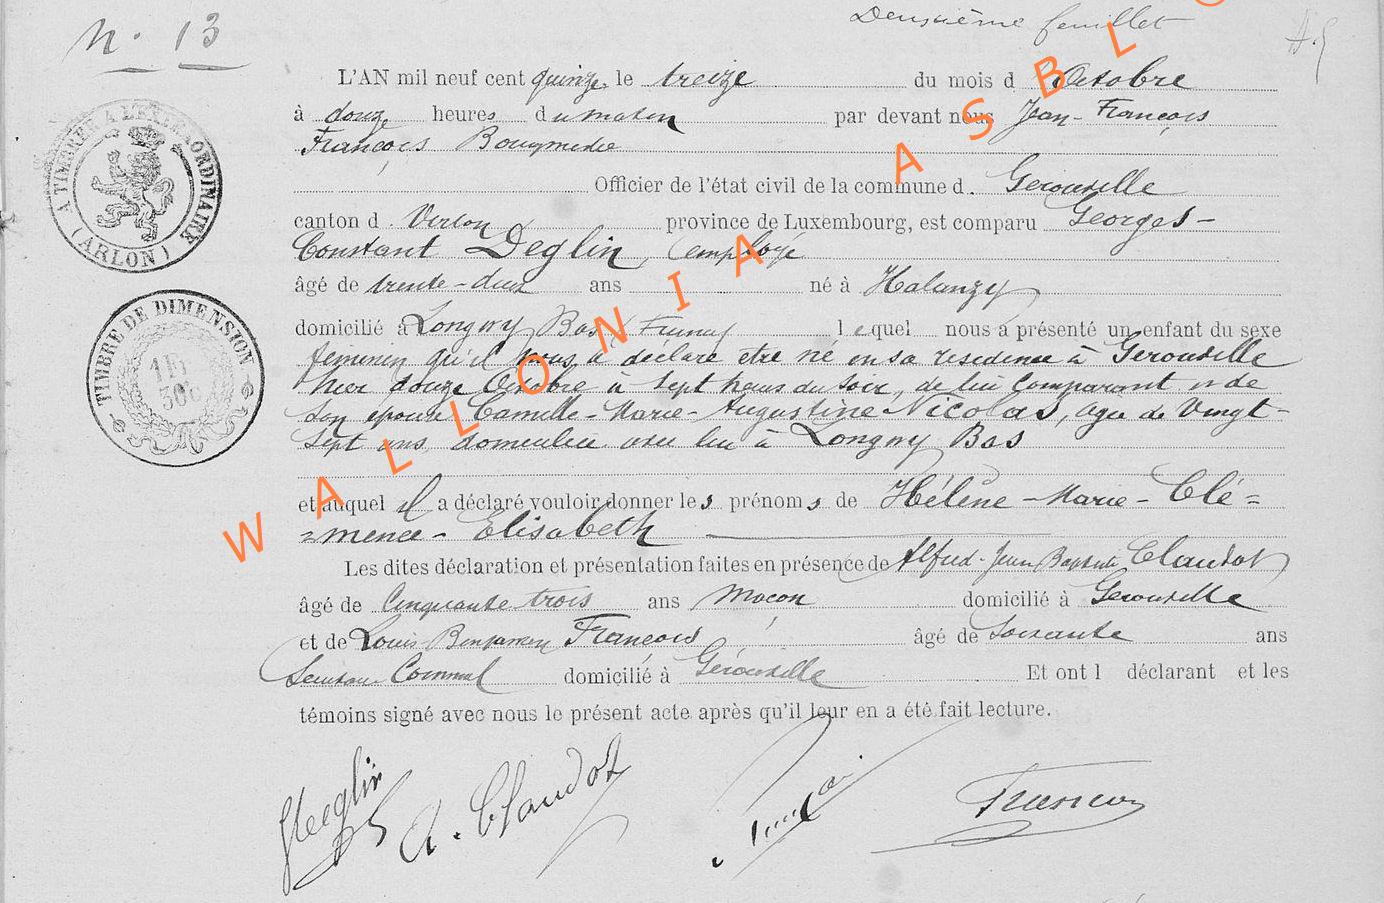 Deuxième feuillet
N. 13
L'AN mil neuf cent quinze le treize du mois d Octobre
à douze heures du matin par devant nous Jean-François
François Bourgmestre
Officier de l'état civil de la commune d. Gerouville
canton d. Virton province de Luxembourg, est comparu Georges-
Constant Deglin, employe
âgé de trente-deux ans né à Halanzy
domicilié à Longwy Bas lequel nous a présenté un enfant du sexe
feminin qu'il nous a déclaré etre né en sa residence à Gerouville
hier douze Octobre à sept heures du soir, de lui Comparant et de
son epouse Camille-Marie-Augustine Nicolas, agee de Vingt-
Sept ans domiciliee avec lui à Longwy Bas
et auquel il a déclaré vouloir donner les prénoms de Hélène-Marie-Clé=
=mence-Elisabeth
Les dites déclaration et présentation faites en présence de Alfred-Jean Baptiste Claudot
âgé de Cinquante trois ans Macon domicilié à Gerouville
et de Louis Benjamin François âgé de Soixante ans
Secretaire Communal domicilié à Gérouville Et ont l déclarant et les
témoins signé avec nous le présent acte après qu'il leur en a été fait lecture.
GDeglin
A. Claudot
François
A TIMBRER A L'EXTRAORDINAIRE
(ARLON)
TIMBRE DE DIMENSION
WALLONIA ASBL